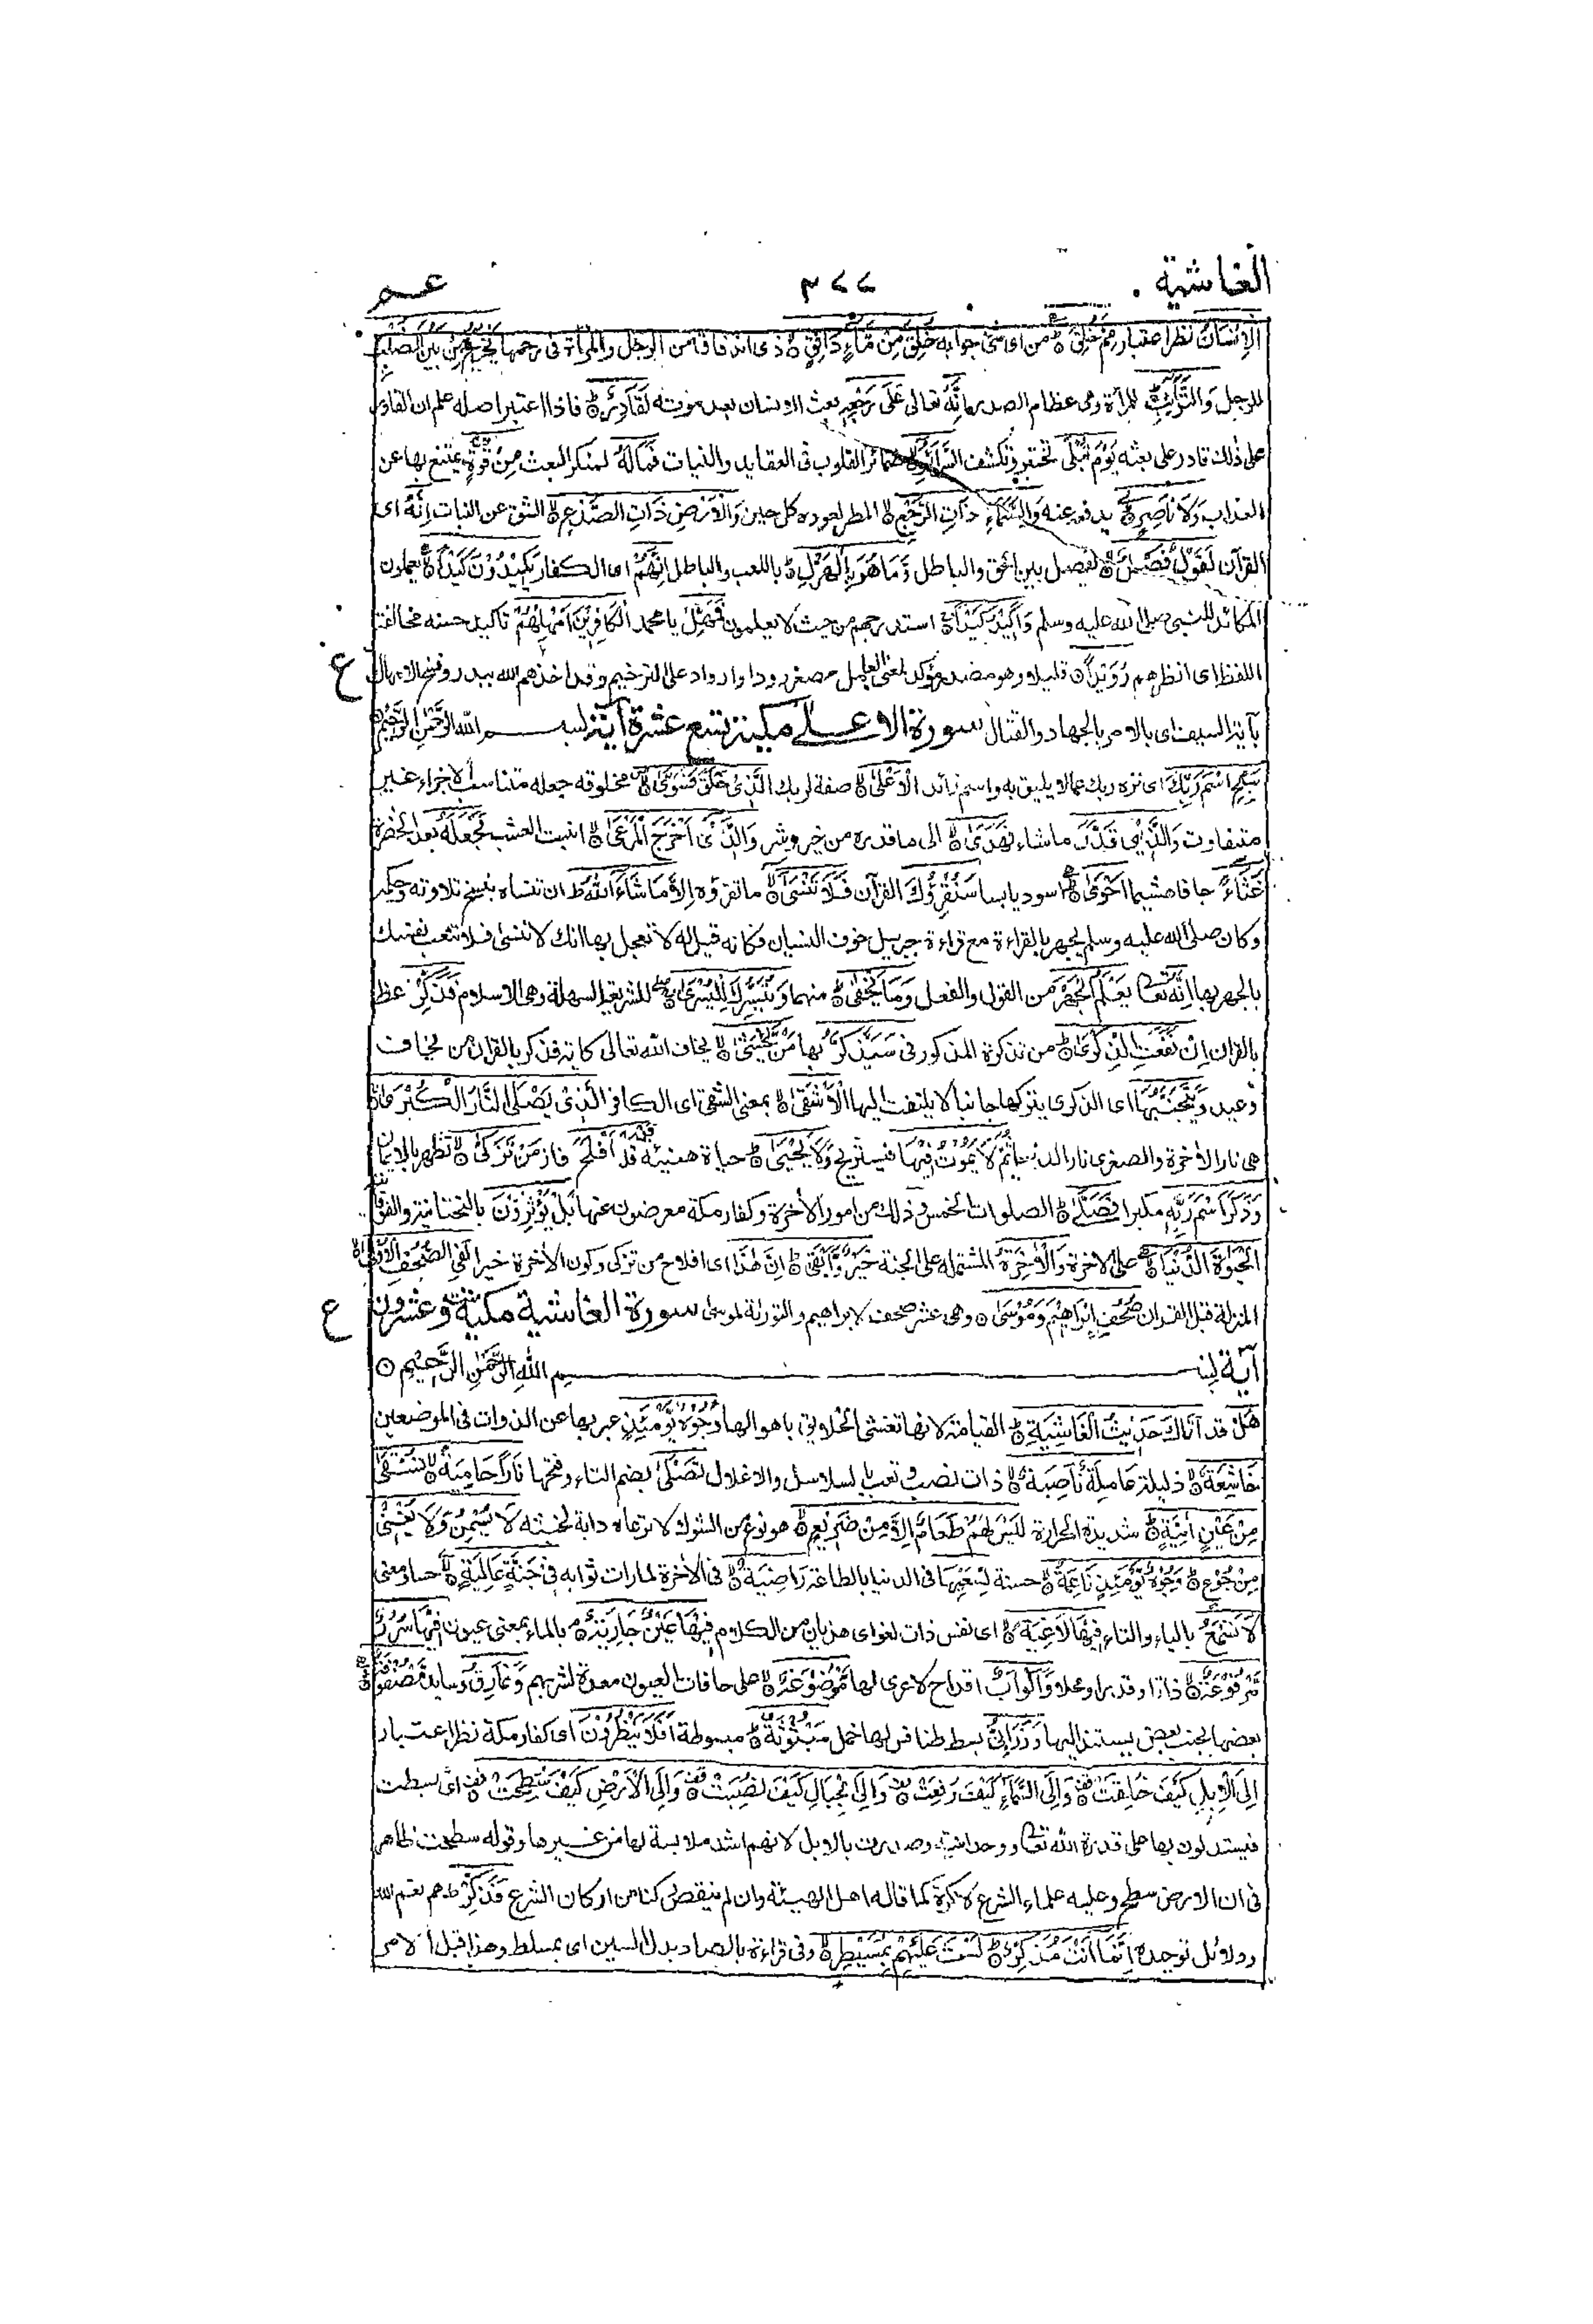 الغاشية
٣٧٧
عم
الْإِنْسَانُ نظر اعتبار مِمَّ خُلِقَ من اى شئ جوابه خُلِقَ مِنْ مَّآءٍ دَافِقٍ ذى اندفاق من الرجل والمرأة فى رحمها يَخْرُجُ مِنْ بَيْنِ الصُّلْبِ
للرجل وَالتَّرَآئِبِ للمرأة وهى عظام الصدر اِنَّهٗ تعالى عَلٰى رَجْعِهٖ بعث الانسان بعد موته لَقَادِرٌ فاذا اعتبر اصله علم ان القادر
على ذلك قادر على بعثه يَوْمَ تُبْلَى تختبر وتكشف السَّرَآئِرُ ضمائر القلوب فى العقايد والنيات فَمَا لَهٗ لمنكر البعث مِنْ قُوَّةٍ يمتنع بها عن
العذاب وَلَا نَاصِرٍ يدفعه عنه وَالسَّمَآءِ ذَاتِ الرَّجْعِ المطر لعوده كل حين وَالْاَرْضِ ذَاتِ الصَّدْعِ الشق عن النبات اِنَّهٗ اى
القرآن لَقَوْلٌ فَصْلٌ يفصل بين الحق والباطل وَمَا هُوَ بِالْهَزْلِ باللعب والباطل اِنَّهُمْ اى الكفار يَكِيْدُوْنَ كَيْدًا يعملون
المكائد للنبى صلى الله عليه وسلم وَاَكِيْدُ كَيْدًا استدرجهم من حيث لا يعلمون فَمَهِّلِ يا محمد الْكَافِرِيْنَ اَمْهِلْهُمْ تاكيد حسنه مخالفة
اللفظ اى انظرهم رُوَيْدًا قليلا وهو مصدر مؤكد لمعنى العامل مصغر رودا او ارواد على الترخيم وقد اخذهم الله ببدر ونسخ الامهال
بآية السيف اى بالامر بالجهاد والقتال سورة الاعلى مكية تسع عشرة آية بسم الله الرحمن الرحيم
سَبِّحِ اسْمَ رَبِّكَ اى نزه ربك عما لا يليق به واسم زائد الْاَعْلَى صفة لربك الَّذِىْ خَلَقَ فَسَوّٰى مخلوقه جعله متناسب الاجزاء غير
متفاوت وَالَّذِىْ قَدَّرَ ما شاء فَهَدٰى الى ما قدره من خير وشر وَالَّذِىْ اَخْرَجَ الْمَرْعٰى انبت العشب فَجَعَلَهٗ بعد الخضرة
غُثَآءً جافا هشيما اَحْوٰى اسود يابسا سَنُقْرِؤُكَ القرآن فَلَا تَنْسٰى ما تقرؤه اِلَّا مَا شَآءَ اللهُ ان تنساه بنسخ تلاوته وحكمه
وكان صلى الله عليه وسلم يجهر بالقراءة مع قراءة جبريل خوف النسيان فكانه قيل له لا تعجل بها انك لا تنسى فلا تتعب نفسك
بالجهر بها اِنَّهٗ تعالى يَعْلَمُ الْجَهْرَ من القول والفعل وَمَا يَخْفٰى منهما وَنُيَسِّرُكَ لِلْيُسْرٰى للشريعة السهلة وهى الاسلام فَذَكِّرْ عظ
بالقران اِنْ نَّفَعَتِ الذِّكْرٰى من تذكرة المذكور فى سَيَذَّكَّرُ بها مَنْ يَّخْشٰى يخاف الله تعالى كاية فذكر بالقران من يخاف
وعيد وَيَتَجَنَّبُهَا اى الذكرى يتركها جانبا لا يلتفت اليها الْاَشْقَى بمعنى الشقى اى الكافر الَّذِىْ يَصْلَى النَّارَ الْكُبْرٰى
هى نار الأخرة والصغرى نار الدنيا ثُمَّ لَا يَمُوْتُ فِيْهَا فيستريح وَلَا يَحْيٰى حياة هنيئة قَدْ اَفْلَحَ فاز مَنْ تَزَكّٰى تطهر بالايمان
وَذَكَرَ اسْمَ رَبِّهٖ مكبرا فَصَلّٰى الصلوات الخمس وذلك من امور الأخرة وكفار مكة معرضون عنها بَلْ يُؤْثِرُوْنَ بالتحتانية والفوقانية
الْحَيٰوةَ الدُّنْيَا على الاخرة وَالْاٰخِرَةُ المشتملة على الجنة خَيْرٌ وَّاَبْقٰى اِنَّ هٰذَا اى افلاح من تزكى وكون الأخرة خيرا لَفِى الصُّحُفِ الْاُوْلٰى
المنزلة قبل القران صُحُفِ اِبْرَاهِيْمَ وَمُوْسٰى وهى عشر صحف لابراهيم والتورىة لموسى سورة الغاشية مكية ست وعشرون
آية بسم الله الرحمن الرحيم
هَلْ قد اَتَاكَ حَدِيْثُ الْغَاشِيَةِ القيامة لانها تغشى الخلايق باهوالها وُجُوْهٌ يَّوْمَئِذٍ عبر بها عن الذوات فى الموضعين
خَاشِعَةٌ ذليلة عَامِلَةٌ نَّاصِبَةٌ ذات نصب وتعب بالسلاسل والاغلال تَصْلٰى بضم التاء وفتحها نَارًا حَامِيَةً تُسْقٰى
مِنْ عَيْنٍ اٰنِيَةٍ شديدة الحرارة لَيْسَ لَهُمْ طَعَامٌ اِلَّا مِنْ ضَرِيْعٍ هو نوع من الشوك لا ترعاه دابة لخبثه لَا يُسْمِنُ وَلَا يُغْنِىْ
مِنْ جُوْعٍ وُجُوْهٌ يَّوْمَئِذٍ نَّاعِمَةٌ حسنة لِّسَعْيِهَا فى الدنيا بالطاعة رَاضِيَةٌ فى الأخرة لما رات ثوابه فِىْ جَنَّةٍ عَالِيَةٍ حسا ومعنى
لَا تَسْمَعُ بالياء والتاء فِيْهَا لَاغِيَةً اى نفس ذات لغو اى هذيان من الكلام فِيْهَا عَيْنٌ جَارِيَةٌ بالماء بمعنى عيون فِيْهَا سُرُرٌ
مَّرْفُوْعَةٌ ذاتا وقدرا ومحلا وَّاَكْوَابٌ اقداح لا عرى لها مَّوْضُوْعَةٌ على حافات العيون معدة لشربهم وَّنَمَارِقُ وسايد مَصْفُوْفَةٌ
بعضها بجنب بعض يستند اليها وَّزَرَابِىُّ بسط طنافس لها خمل مَبْثُوْثَةٌ مبسوطة اَفَلَا يَنْظُرُوْنَ اى كفار مكة نظر اعتبار
اِلَى الْاِبِلِ كَيْفَ خُلِقَتْ وَاِلَى السَّمَآءِ كَيْفَ رُفِعَتْ وَاِلَى الْجِبَالِ كَيْفَ نُصِبَتْ وَاِلَى الْاَرْضِ كَيْفَ سُطِحَتْ اى بسطت
فيستدلون بها على قدرة الله تعالى ووحدانيته وصدرت بالابل لانهم اشد ملابسة لها من غيرها وقوله سطحت ظاهر
فى ان الارض سطح وعليه علماء الشرع لا كرة كما قاله اهل الهيئة وان لم ينقض ركنا من اركان الشرع فَذَكِّرْ هم نعم الله
ودلائل توحيده اِنَّمَا اَنْتَ مُذَكِّرٌ لَسْتَ عَلَيْهِمْ بِمُسَيْطِرٍ وفى قراءة بالصاد بدل السين اى بمسلط وهذا قبل الامر
ع
ع